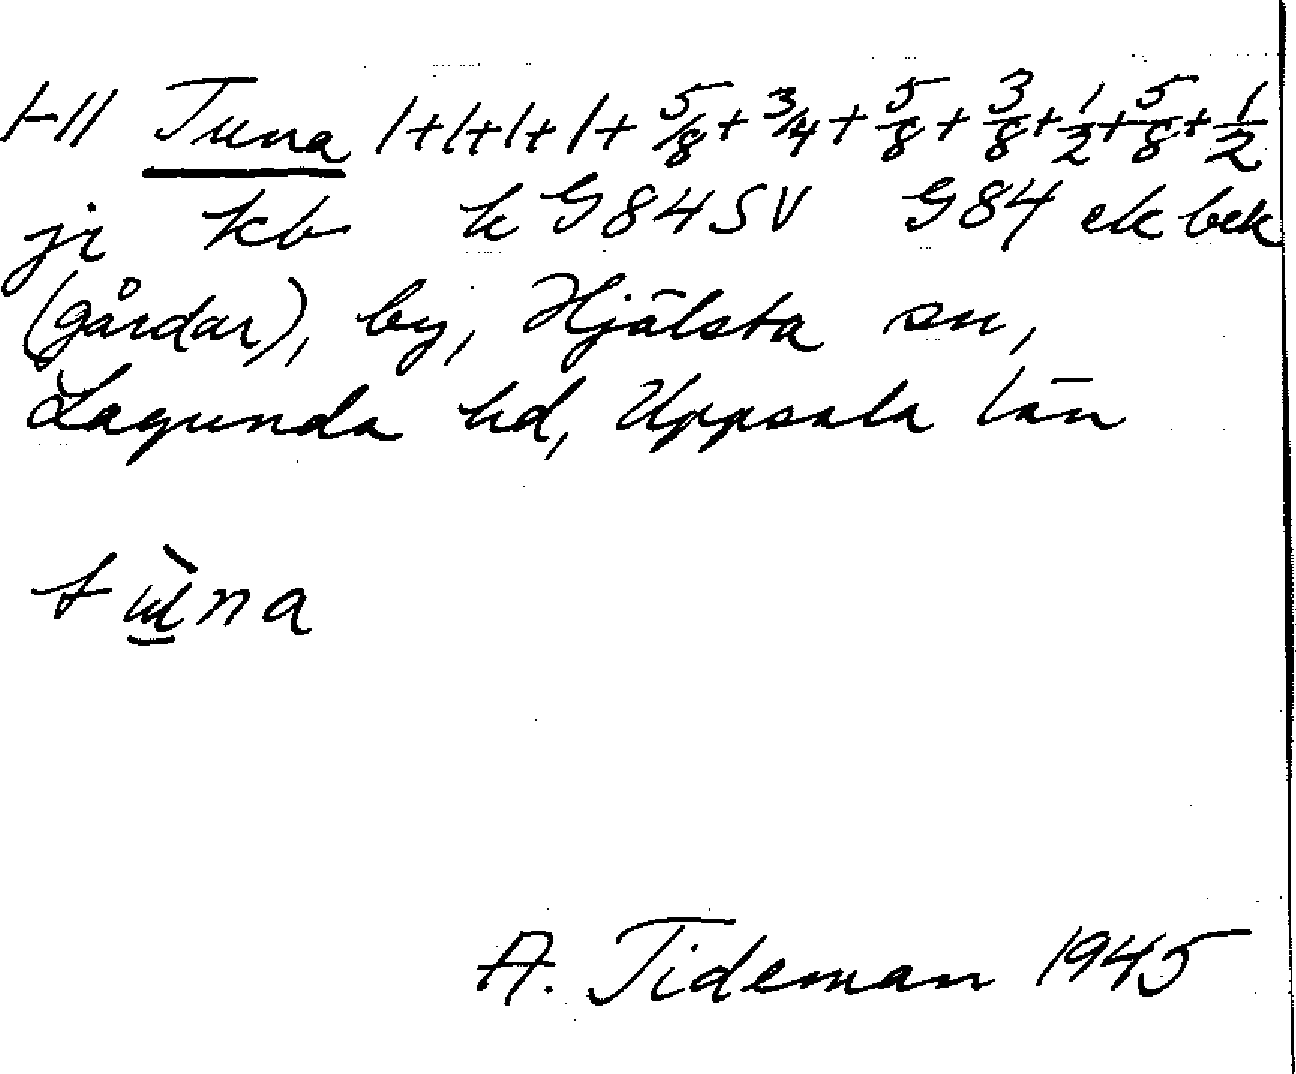 1-11 Tuna 1+1+1+1+5/8+3/4+5/8+3/8+1/2+5/8+1/2
ji kb k G84SV G84 ek bek
(gårdar), by, Hjälsta sn,
Lagunda hd, Uppsala län
tùna
A. Tideman 1945